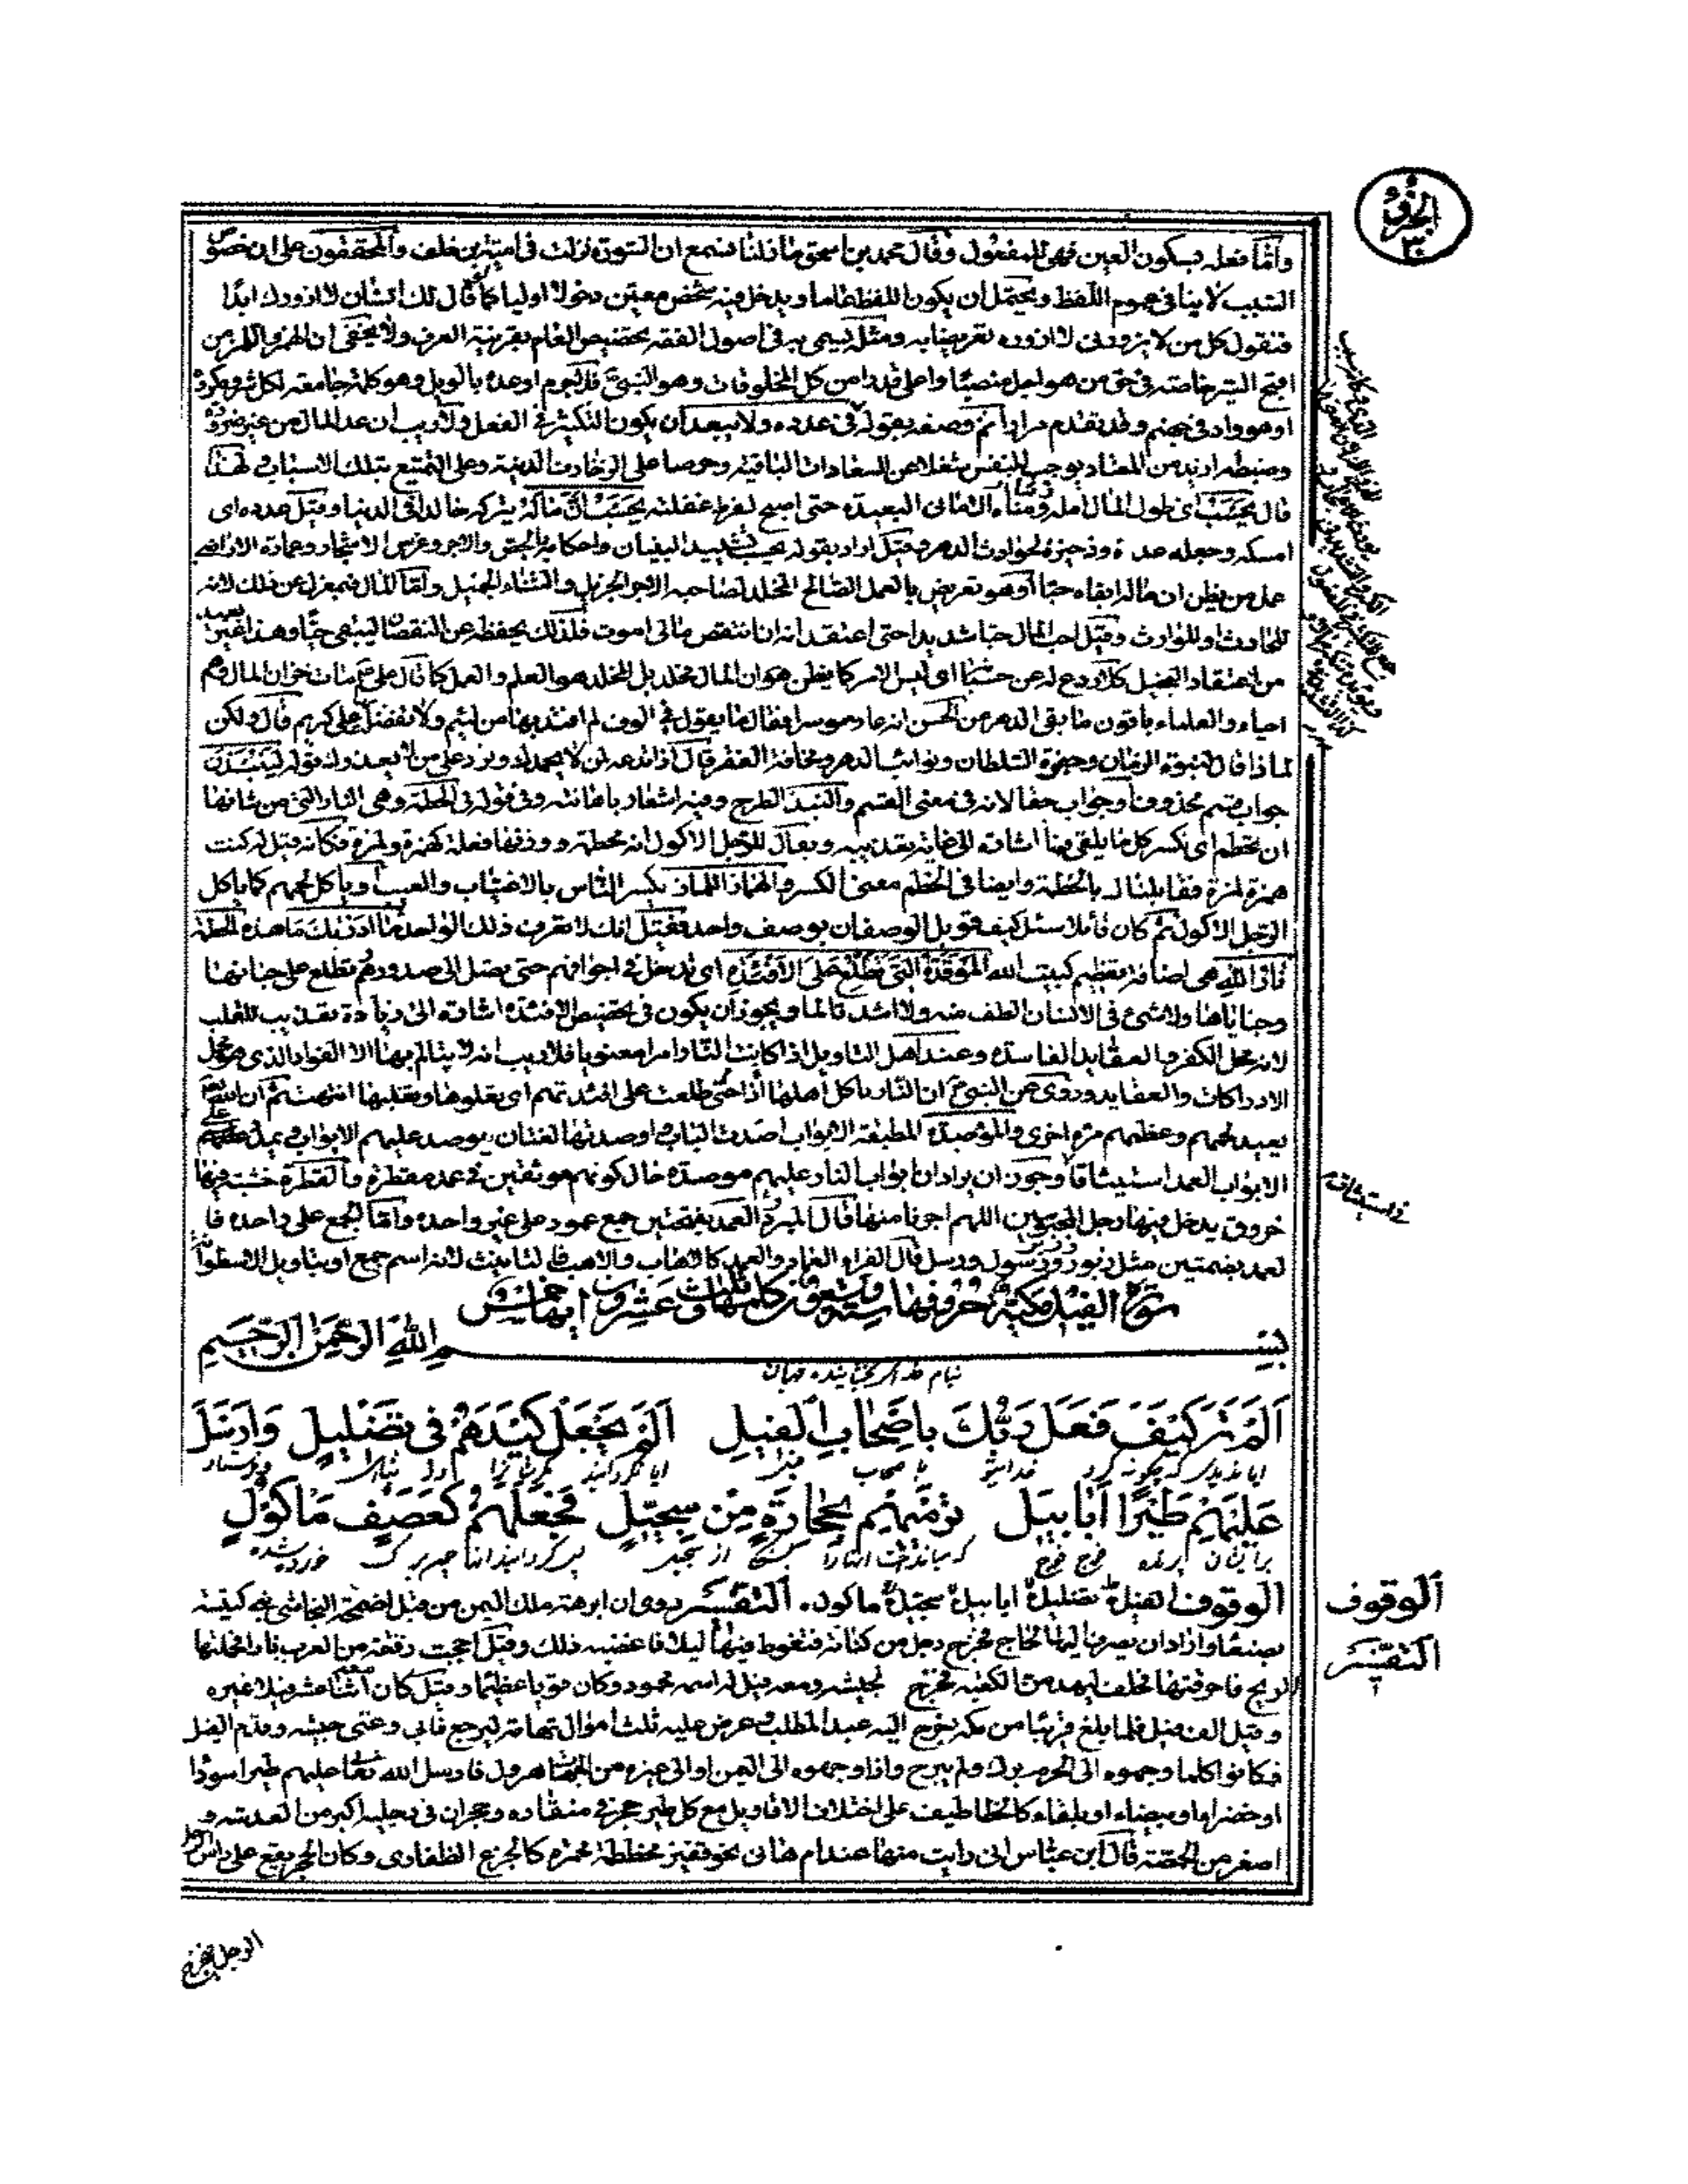 الجزو
٣٠
وأما فعلة بسكون العين فهي للمفعول وقال محمد بن اسحق ما زلنا نسمع ان السورة نزلت في امية بن خلف والمحققون على ان خصوص
السبب لا ينافي عموم اللفظ ويحتمل ان يكون اللفظ عاما ويدخل فيه شخص معين دخولا اوليا كما قال لك انسان لا ازورك ابدا
فتقول كل من لا يزورني لا ازوره تعريضا به ومثله يسمى به في اصول الفقه تخصيص العام بقرينة العرف ولا يخفى ان الهمز واللمز من
اقبح السير خاصة في حق من هو اجل منصبا واعلى قدرا من كل المخلوقات وهو النبي فلا جرم اوعده بالويل وهو كلمة جامعة لكل شر ومكروه
او هو واد في جهنم وقد تقدم مرارا ثم وصفه بقوله في عدده ولا يبعد ان يكون التكثير في الفعل ولا ريب ان عد المال من غير ضرورة
وضبطه ازيد من المعتاد يوجب للنفس شغلا عن السعادات الباقية وحرصا على الزخارف الدنية وعلى التمتع بتلك الاسباب لهذا
قال يحسب اي طول المال امله ومناه الاماني البعيدة حتى اصبح لفرط غفلته يحسب ان ماله يتركه خالدا في الدنيا وقيل عدده اي
امسكه وجعله عدة وذخيرة لحوادث الدهر وقيل اراد بقوله يحسب تشييد البنيان واحكامه بالجص والآجر وغرس الاشجار وعمارة الاراضي
عمل من يظن ان ماله ابقاه حيا او هو تعريض بالعمل الصالح المخلد لصاحبه الاجر الجزيل والثناء الجميل واما المال فبمعزل عن ذلك لانه
للحادث او للوارث وقيل احب المال حبا شديدا حتى اعتقد انه ان انتقص مالي اموت فلذلك يحفظه عن النقصان ليبقى حيا وهذا غير بعيد
من اعتقاد البخيل كلا ردع له عن حسبانه اي ليس الامر كما يظن هو ان المال مخلد بل المخلد هو العلم والعمل كما قال علي ع مات خزان المال وهم
احياء والعلماء باقون ما بقي الدهر وعن الحسن انه عاد موسرا فقال ما تقول في الوف لم افتد بها من لئيم ولا تفضلت على كريم قال ولكن
لماذا قال لنبوة الزمان وجفوة السلطان ونوائب الدهر ومخافة الفقر قال اذا تدعه لمن لا يحمدك وترد على من لا يعذرك قوله لينبذن
جواب قسم محذوف او جواب حقا لانه في معنى القسم والنبذ الطرح وفيه اشعار باهانته وفي قوله في الحطمة وهي النار التي من شانها
ان تحطم اي تكسر كل ما يلقى فيها اشارة الى غاية تعذيبه ويقال للرجل الاكول انه لحطمة ووزنها فعلة كهمزة ولمزة فكانه قيل له كنت
همزة لمزة فقابلناك بالحطمة وايضا في الحطم معنى الكسر والهماز اللماز يكسر الناس بالاغتياب والعيب او ياكل لحمهم كما ياكل
الرجل الاكول ثم كان قائلا سئل كيف قوبل الوصفان بوصف واحد فقيل انك لا تعرف ذلك الواحد ما ادريك ما هذه الحطمة
نار الله هي اضافة تعظيم كبيت الله الموقدة التي تطلع على الافئدة اي تدخل في اجوافهم حتى تصل الى صدورهم وتطلع على جناياتها
وخباياها ولا شيء في الانسان الطف منه ولا اشد تالما ويجوز ان يكون في تخصيص الافئدة اشارة الى زيادة تعذيب للقلب
لانه محل الكفر والعقايد الفاسدة وعند اهل التاويل اذا كانت النار امرا معنويا فلا ريب انه لا يتالم بها الا الفواد الذي هو محل
الادراكات والعقايد وروي عن النبي ص ان النار تاكل اهلها حتى اذا طلعت على افئدتهم اي تعلوها وتغلبها انتهت ثم ان الله تعالى
يعيد لحمهم وعظمهم مرة اخرى والموصدة المطبقة الابواب اصدت الباب واوصدتها لغتان يوصد عليهم الابواب ويمد على
الابواب العمد استيثاقا وجوز ان يراد ان ابواب النار عليهم موصدة حال كونهم موثقين في عمد مقطرة والمقطرة خشبة فيها
خروق يدخل فيها ارجل المحبوسين اللهم اجرنا منها قال المبرد العمد بفتحتين جمع عمود على غير واحده واما الجمع على واحده فا
لعمد بضمتين مثل زبور وزبر ورسول ورسل قال الفراء العماد والعمد كالاهاب والاهب والتانيث لانه اسم جمع او بتاويل الاسطوانة
سورة الفيل مكية حروفها ستة وتسعون كلماتها ثلث وعشرون آيها خمس
بسم الله الرحمن الرحيم
بنام خداى بخشاينده مهربان
الم تر كيف فعل ربك باصحاب الفيل الم يجعل كيدهم في تضليل وارسل
ايا نديدى كه چگونه كرد خدايتو با صحاب فيل ايا نگردانيد مكرشانرا در تباهى وفرستاد
عليهم طيرا ابابيل ترميهم بحجارة من سجيل فجعلهم كعصف ماكول
بر ايشان پرنده فوج فوج كه ميانداخت ايشانرا بسنگ از سجيل پس گردانيد ايشانرا چون برگ خورده شده
الوقوف الفيل تضليل ابابيل سجيل ماكول. التفسير روي ان ابرهة ملك اليمن من قبل اصحمة النجاشي بنى كنيسة
بصنعا واراد ان يصرف اليها الحاج فخرج رجل من كنانة فتغوط فيها ليلا فاغضبه ذلك وقيل اججت رفقة من العرب نارا فحملتها
الريح فاحرقتها فحلف ليهدمن الكعبة فخرج بجيشه ومعه فيل له اسمه محمود وكان قويا عظيما وقيل كان اثنا عشر فيلا غيره
وقيل الف فيل فلما بلغ قريبا من مكة خرج اليه عبد المطلب وعرض عليه ثلث اموال تهامة ليرجع فابى وعبى جيشه وقدم الفيل
فكانوا كلما وجهوه الى الحرم برك ولم يبرح واذا وجهوه الى اليمن او الى غيره من الجهات هرول فارسل الله تعالى عليهم طيرا سودا
او خضرا او بيضاء او بلقاء كالخطاطيف على اختلاف الاقاويل مع كل طير حجر في منقاره وحجران في رجليه اكبر من العدسة و
اصغر من الحمصة قال ابن عباس اني رايت منها عند ام هاني نحو قفيز مخططة بحمرة كالجزع الظفاري وكان الحجر يقع على راس الرجل
الوقوف
التفسير
استيثاقه
الرجل فيخرج